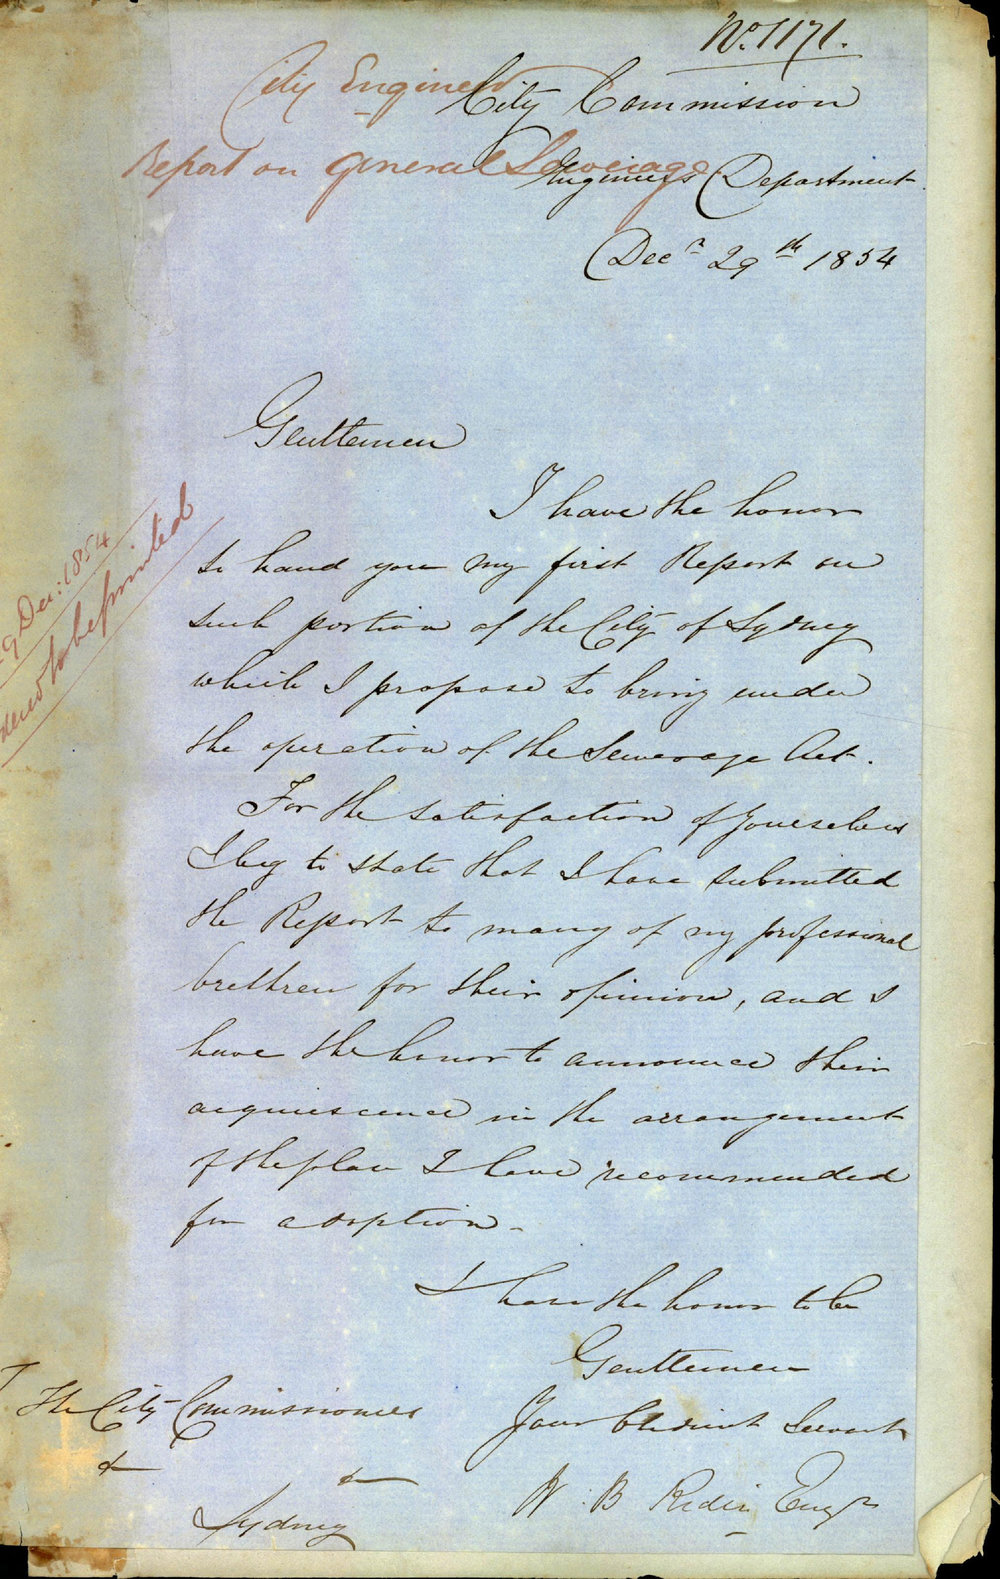 No. 1171.
City Engineer
City Commission
Report on General Sewerage
Engineers Department
Decr 29th 1854
Gentlemen
I have the honor
to hand you my first Report on
such portion of the City of Sydney
which I propose to bring under
the operation of the Sewerage Act.
29 Dec: 1854
to be printed
For the satisfaction of Yourselves
I beg to state that I have submitted
the Report to many of my professional
brethren for their opinion, and I
have the honor to announce their
acquiescence in the arrangement
of the plan I have recommended
for adoption -
I have the honor to be
Gentlemen
Your Obedient Servant
W. B. Rider Engr
The City Commissioners
Sydney